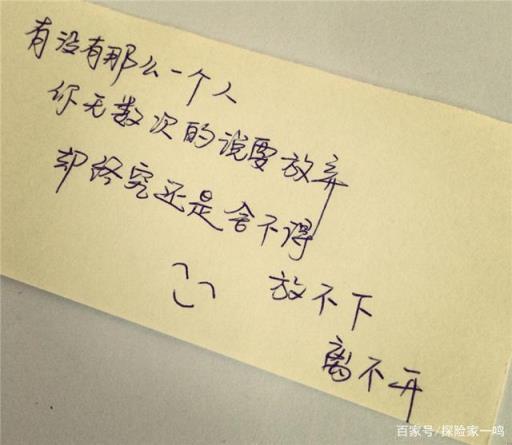 有没有那么一个人
你无数次的说要放弃
却终究还是舍不得
放不下
离不开
百家号/探险家一鸣